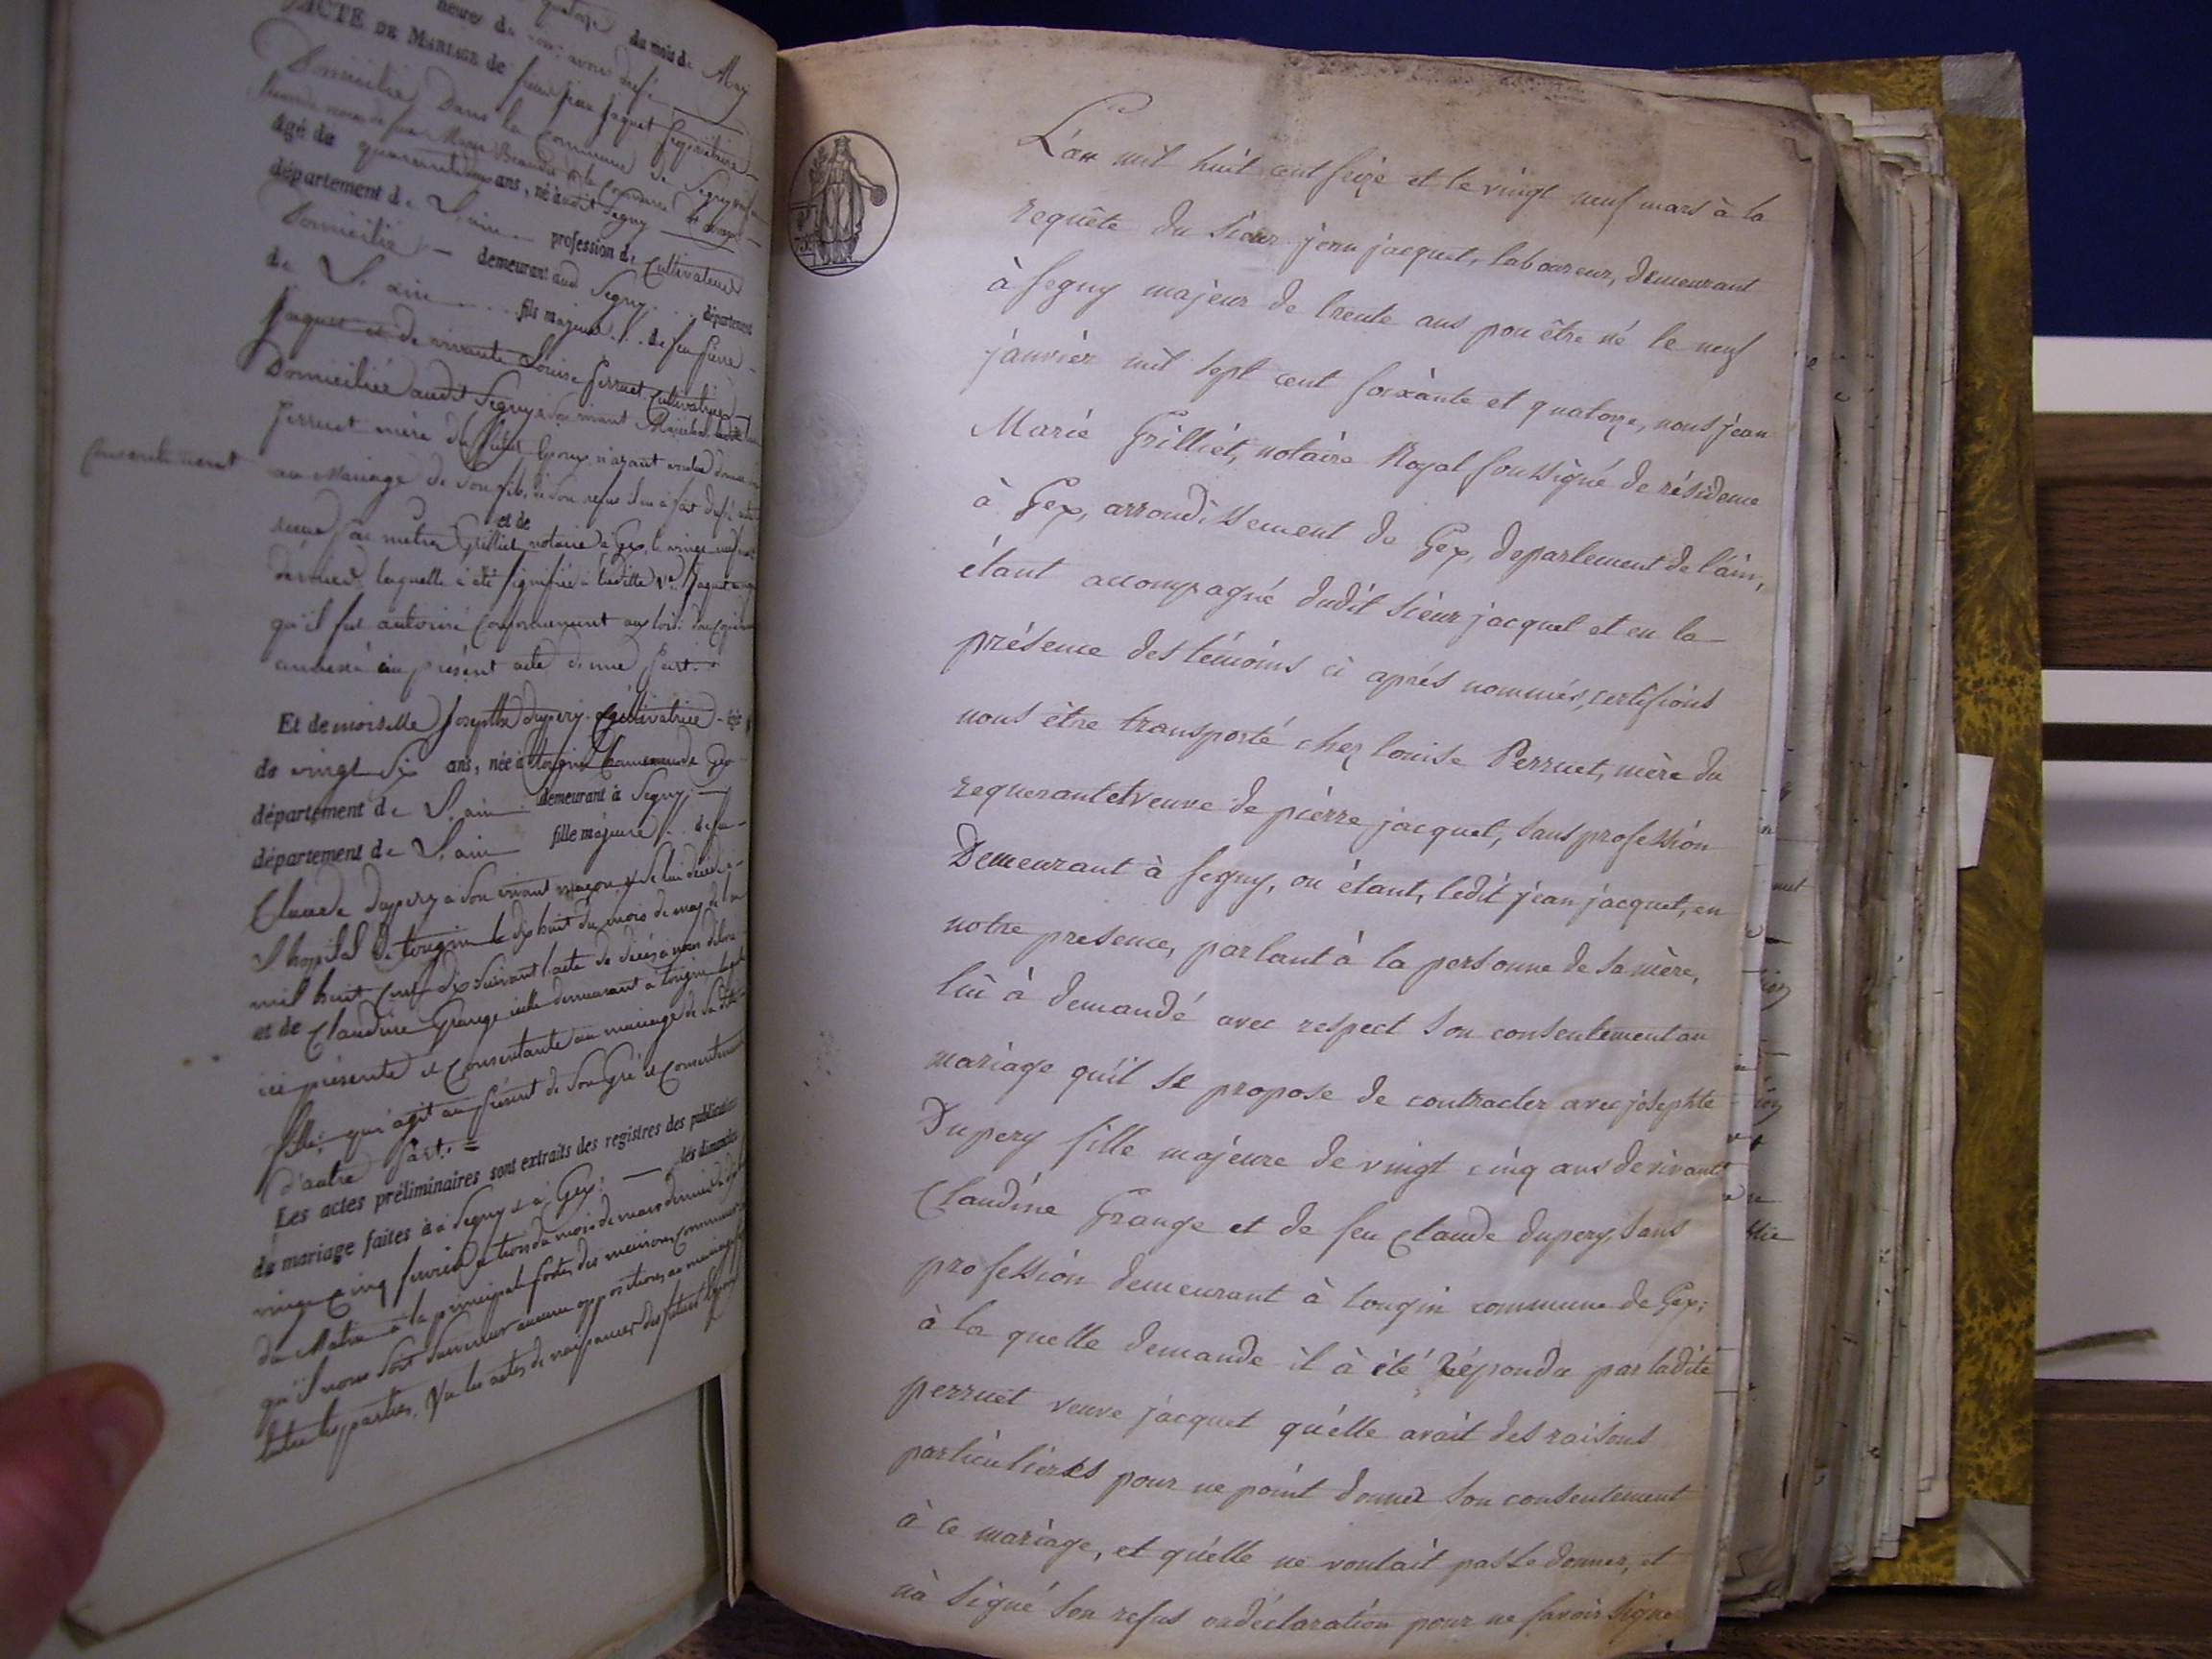 quatorze du mois de May
heures du
ACTE DE MARIAGE de jean jaquet
Domicilié Dans la Commune de Segny
agé de quarante deux ans, né audit Segny
département de L'ain profession de Cultivateur
Domicilié demeurant audit Segny département
de L'ain fils majeur de feu Pierre
Jaquet et de vivante Louise Perruet Cultivatrice
Domiciliée audit Segny
Perruet mère du futur Epoux n'ayant voulu donner
Consentement
au Mariage de son fils, de son refus
et de
par maitre Grilliet notaire à Gex, le vingt neuf mars
dernier, laquelle a été signifiée à laditte Ve Jaquet
qu'il fut autorisé Conformement aux lois
annexé au présent acte d'une part.
Et demoiselle Josephte dupery Cultivatrice
de vingt Six ans, née à tougin Commune de Gex
département de L'ain demeurant à Segny
département de L'ain fille majeure de feu
Claude dupery à son vivant maçon décédé
L'hopital de tougin le dix huit du mois de may
mil huit Cent dix suivant l'acte de décès
et de Claudine Grange icelle demeurant à tougin
ici présente et Consentante au mariage de sa
fille qui agit au présent de son Gré et Consentement
d'autre part. =
Les actes préliminaires sont extraits des registres des publications
de mariage faites à à Segny & à Gex les dimanches
vingt Cinq fevrier & trois du mois de mars dernier
du Matin à la principale porte des maisons Communes
qu'il nous soit survenu aucune opposition au mariage
Vu les actes de naissances des futurs Epoux
L'an mil huit cent seize et le vingt neuf mars à la
requête du Sieur jean jacquet, laboureur, demeurant
à Segny majeur de trente ans pou être né le neuf
janvier mil sept cent soixante et quatorze, nous jean
Marie Grilliet, notaire Royal soussigné de résidence
à Gex, arrondissement de Gex, departement de l'ain,
étant accompagné dudit sieur jacquet et en la
présence des témoins ci aprés nommés, certifions
nous être transporté chez louise Perruet, mère du
requerant et veuve de pierre jacquet, sans profession
Demeurant à Segny, ou étant, ledit jean jacquet, en
notre presence, parlant à la personne de sa mère,
lui à demandé avec respect son consentement au
mariage qu'il se propose de contracter avec josephte
Dupery fille majeure de vingt cinq ans de vivante
Claudine Grange et de feu Claude dupery, sans
profession demeurant à tougin commune de Gex;
à la quelle demande il à été Répondu par ladite
perruet veuve jacquet qu'elle avait des raisons
particulieres pour ne point donner son consentement
à ce mariage, et qu'elle ne voulait pas le donner, et
n'à signé son refus ou déclaration pour ne savoir signer